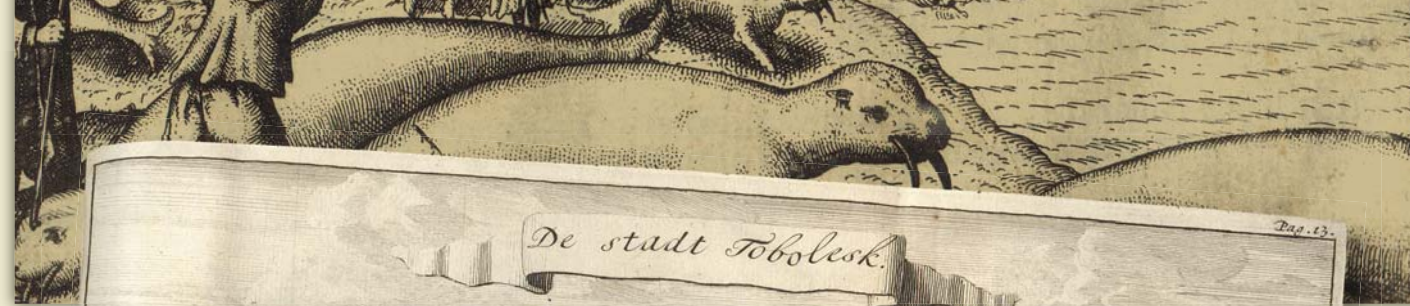 Pag. 13.
De stadt Tobolesk.